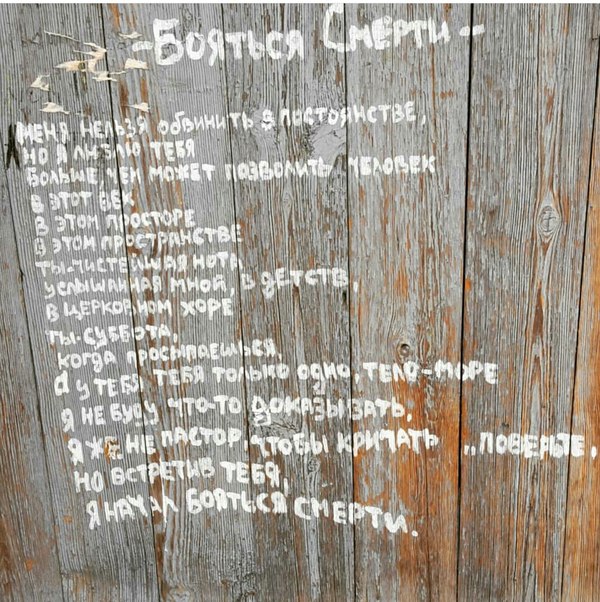 -Бояться Смерти-
меня нельзя обвинить в постоянстве,
но я люблю тебя
больше, чем может позволить человек
в этот век
в этом просторе
в этом пространстве
ты-чистейшая нота,
услышанная мной, в детстве,
в церковном хоре
ты-суббота,
когда просыпаешься,
а у тебя, тебя только одно, тело-море
я не буду что-то доказывать,
я же не пастор, чтобы кричать „поверьте,
но встретив тебя,
я начал бояться смерти.